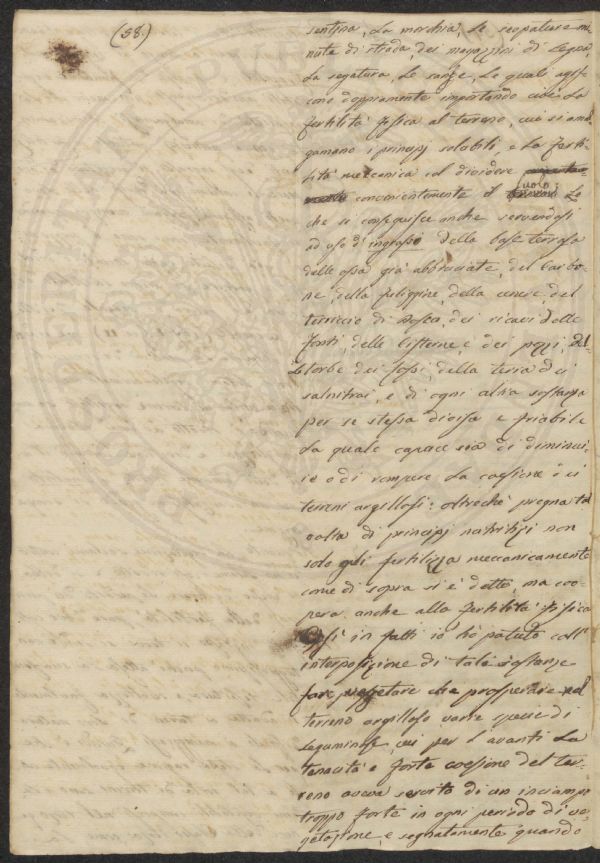 (58.)
sentina, la morchia, le scopature mi-
nute di strada, dei magazzini di legna
la segatura, le sanse, le quali agis-
cono doppiamente impartando cioè la
fertilità fisica al terreno, cui si amal-
gamano i principj solubili, e la ferti-
lità meccanica col dividere
convenientemente il suolo: lo
che si conseguisce anche servendosi
ad uso d'ingrasso della base terrosa
delle ossa già abbruciate, del carbo-
ne, della fuliggine, della cenere, del
terriccio di bosco, dei ricavi delle
fonti, delle cisterne, e dei pozzi, del-
le torbe dei fossi, della terra dei
salnitrai, e di ogni altra sostanza
per se stessa divisa e friabile
la quale capace sia di diminui-
re o di rompere la coesione dei
terreni argillosi: oltreché pregna tal
volta di principj nutritizj non
solo gli fertilizza meccanicamente
come di sopra si è detto, ma coo-
pera anche alla fertilità fisica
Così in fatti io hò potuto coll'
interposizione di tali sostanze
fare vegetare che prosperare nel
terreno argilloso varie specie di
leguminose cui per l'avanti la
tenacità e forte coesione del ter-
reno aveva servito di un inciampo
troppo forte in ogni periodo di ve-
getazione, e segnatamente quando